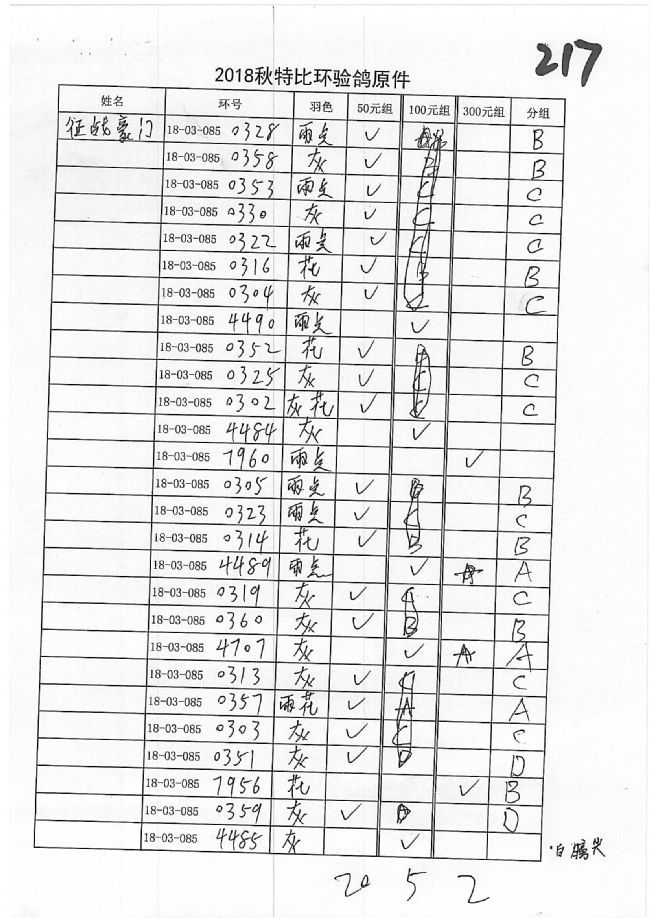 217
2018秋特比环验鸽原件
姓名 环号 羽色 50元组 100元组 300元组 分组
征战豪门 18-03-085 0328 雨点 ✓ B
18-03-085 0358 灰 ✓ B B
18-03-085 0353 雨点 ✓ C C
18-03-085 0330 灰 ✓ C C
18-03-085 0322 雨点 ✓ C C
18-03-085 0316 花 ✓ B B
18-03-085 0304 灰 ✓ C C
18-03-085 4490 雨点 ✓
18-03-085 0352 花 ✓ B
18-03-085 0325 灰 ✓ C C
18-03-085 0302 灰花 ✓ C C
18-03-085 4484 灰 ✓
18-03-085 7960 雨点 ✓
18-03-085 0305 雨点 ✓ B B
18-03-085 0323 雨点 ✓ C C
18-03-085 0314 花 ✓ B B
18-03-085 4489 雨点 ✓ A A
18-03-085 0319 灰 ✓ C
18-03-085 0360 灰 ✓ B B
18-03-085 4707 灰 ✓ A A
18-03-085 0313 灰 ✓ C C
18-03-085 0357 雨花 ✓ A A
18-03-085 0303 灰 ✓ C C
18-03-085 0351 灰 ✓ D D
18-03-085 7956 花 ✓ B
18-03-085 0359 灰 ✓ D D
18-03-085 4485 灰 ✓
20 5 2